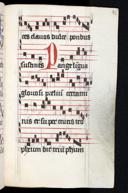 ces clavos dulce pondus
sustinet Pange ligua
gloriosi prelium certami
nis et super crucis tro
pheum dic triumphum